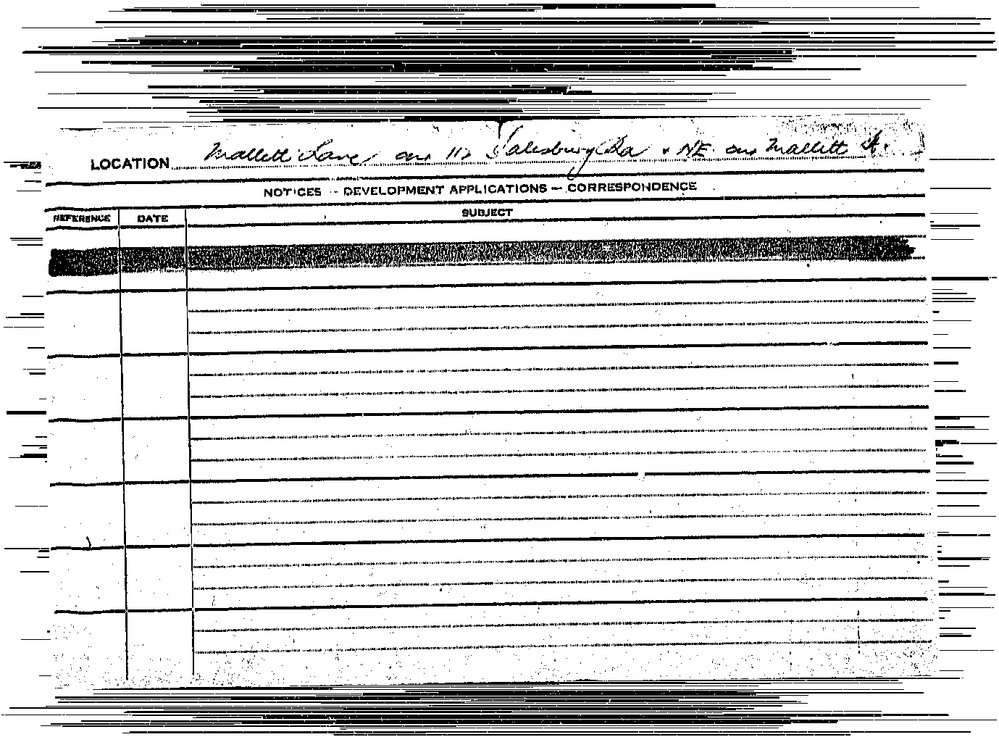 LOCATION Mallett Lane, cnr 112 Salisbury Rd & NE cnr Mallett St.
NOTICES - DEVELOPMENT APPLICATIONS - CORRESPONDENCE
REFERENCE DATE SUBJECT